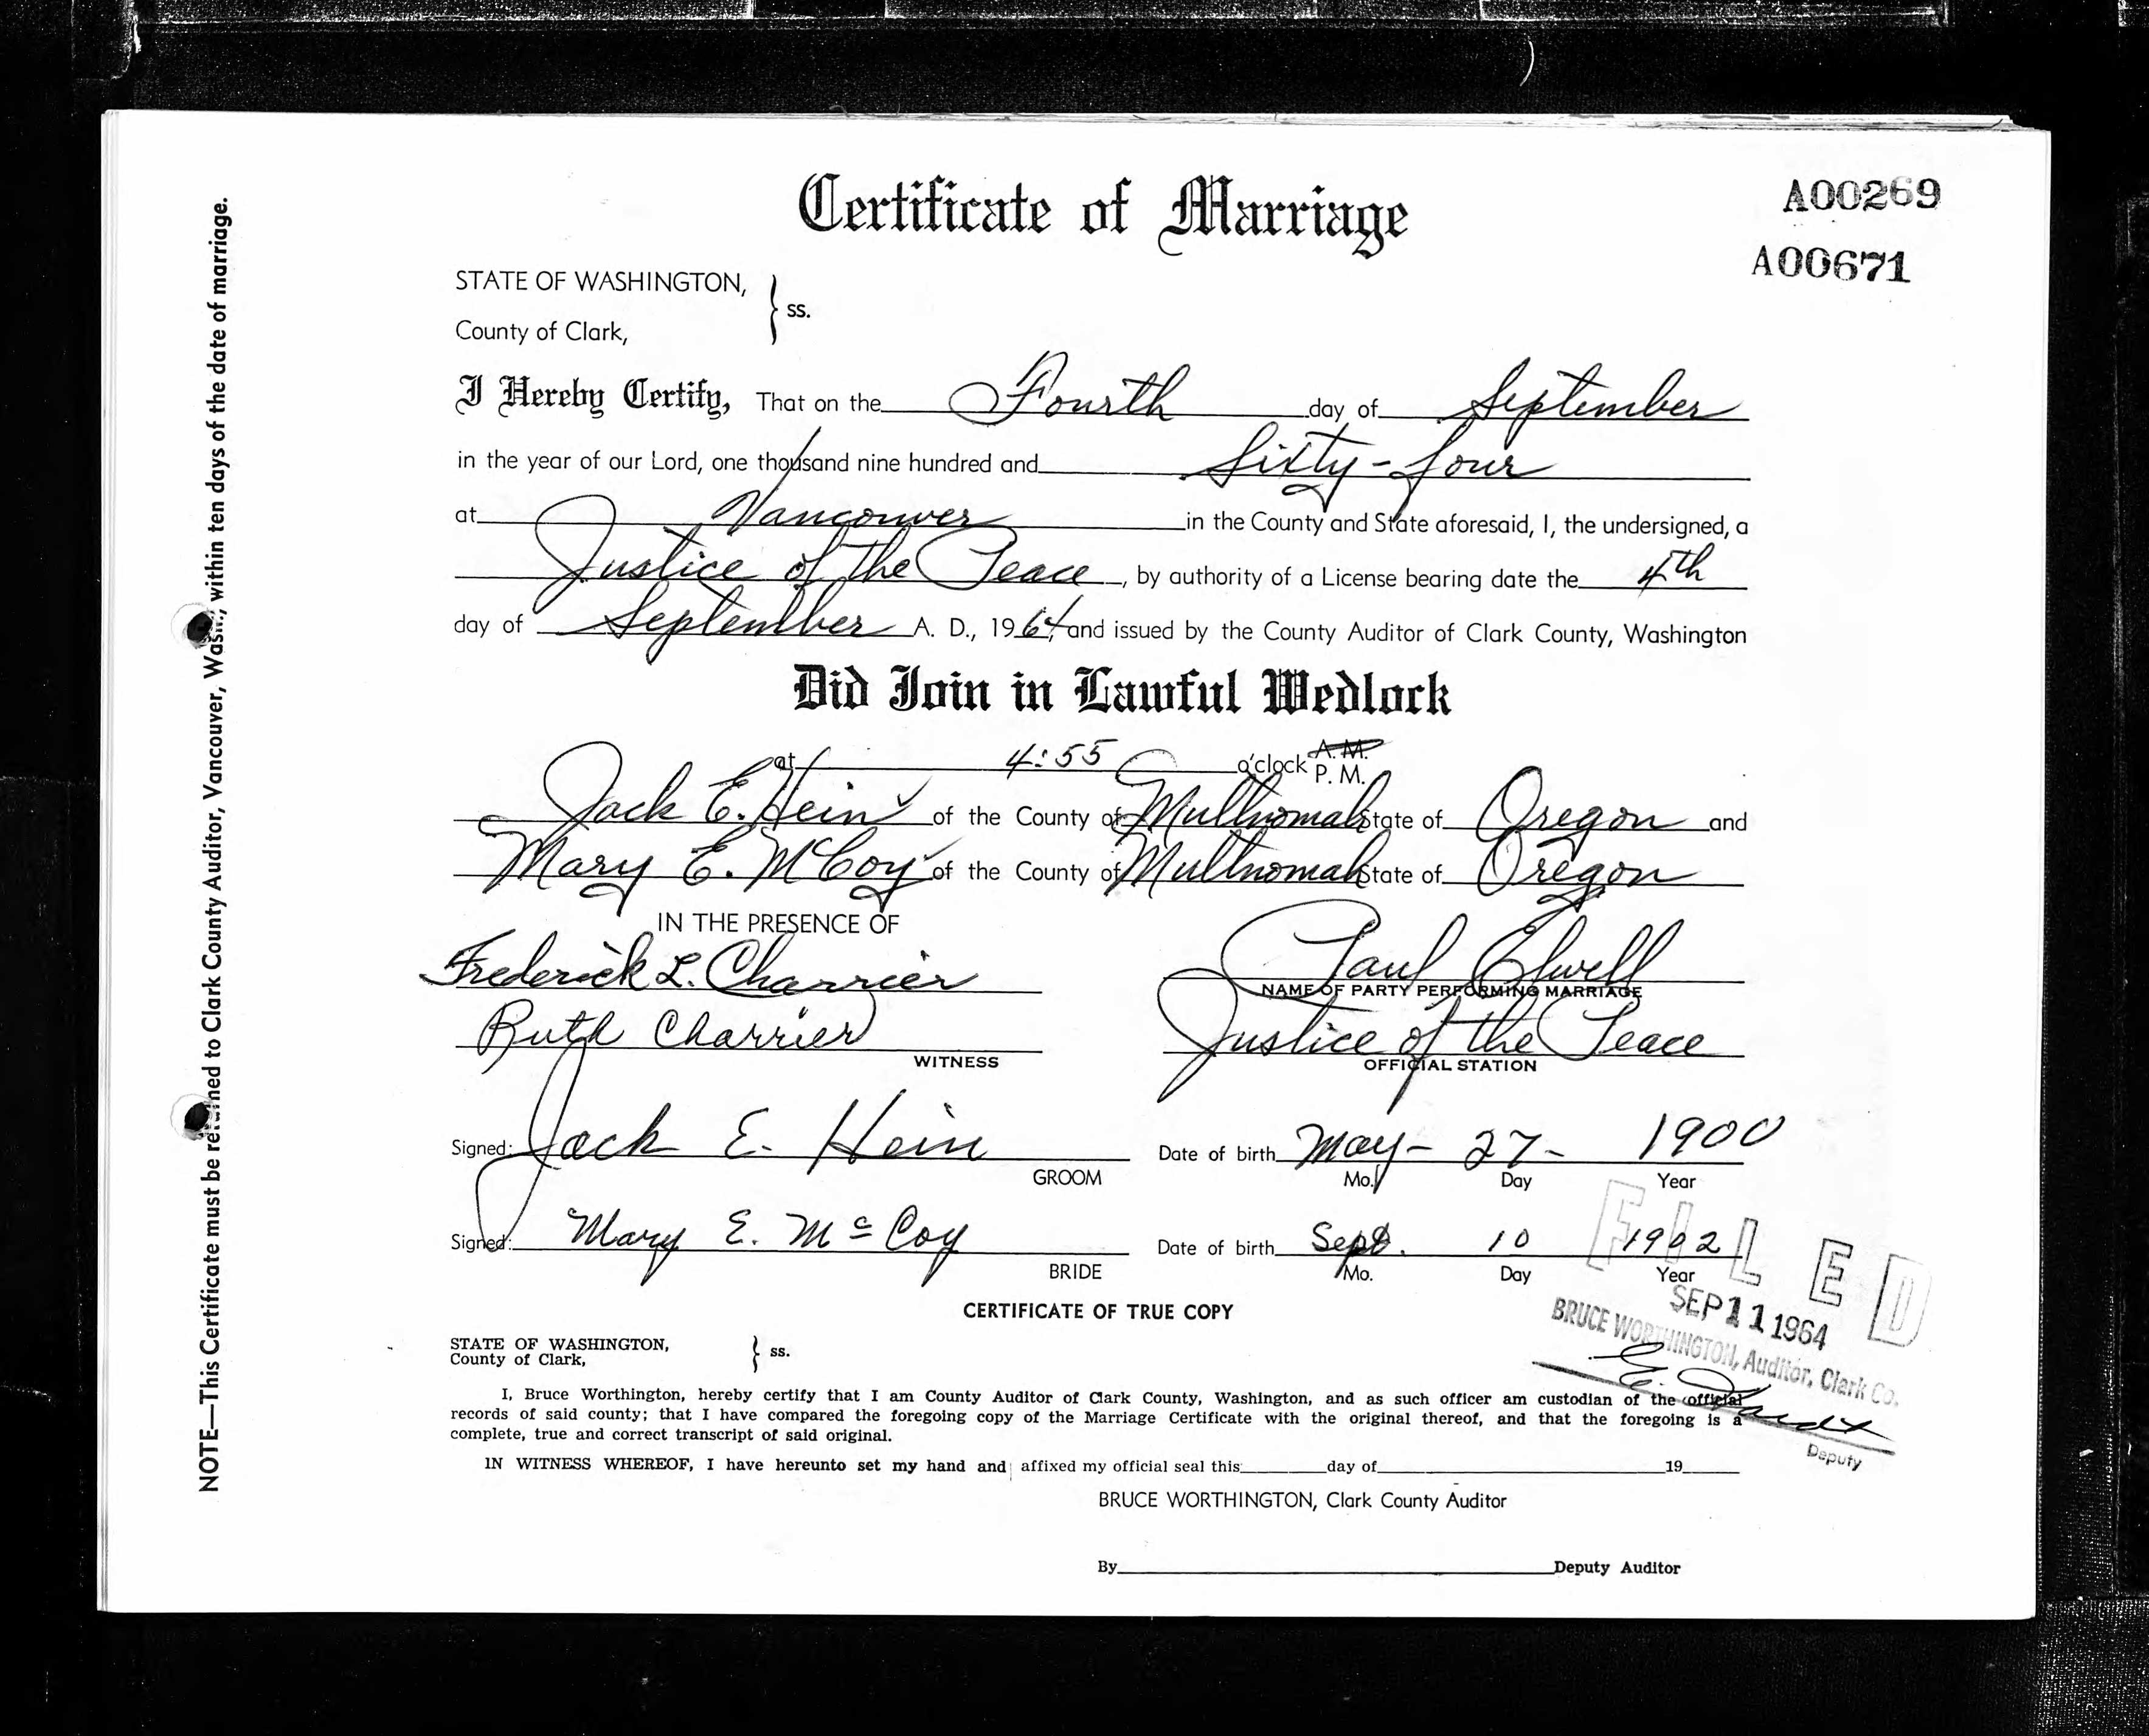 Certificate of Marriage
A00269
A00671
STATE OF WASHINGTON,
County of Clark,
} ss.
I Hereby Certify, That on the Fourth day of September
in the year of our Lord, one thousand nine hundred and Sixty-four
at Vancouver in the County and State aforesaid, I, the undersigned, a
Justice of the Peace, by authority of a License bearing date the 4th
day of September A. D., 1964, and issued by the County Auditor of Clark County, Washington
Did Join in Lawful Wedlock
at 4:55 o'clock A.M.
P. M.
Jack E. Hein of the County of Multnomah State of Oregon and
Mary E. McCoy of the County of Multnomah State of Oregon
IN THE PRESENCE OF
Frederick L. Charrier
Ruth Charrier
WITNESS
Paul Elwell
NAME OF PARTY PERFORMING MARRIAGE
Justice of the Peace
OFFICIAL STATION
Signed: Jack E. Hein
GROOM
Date of birth May - 27 - 1900
Mo. Day Year
Signed: Mary E. McCoy
BRIDE
Date of birth Sept. 10 1902
Mo. Day Year
FILED
SEP 11 1964
BRUCE WORTHINGTON, Auditor, Clark Co.
E.
Deputy
CERTIFICATE OF TRUE COPY
STATE OF WASHINGTON,
County of Clark,
} ss.
I, Bruce Worthington, hereby certify that I am County Auditor of Clark County, Washington, and as such officer am custodian of the official
records of said county; that I have compared the foregoing copy of the Marriage Certificate with the original thereof, and that the foregoing is a
complete, true and correct transcript of said original.
IN WITNESS WHEREOF, I have hereunto set my hand and affixed my official seal this day of 19
BRUCE WORTHINGTON, Clark County Auditor
By Deputy Auditor
NOTE—This Certificate must be returned to Clark County Auditor, Vancouver, Wash., within ten days of the date of marriage.